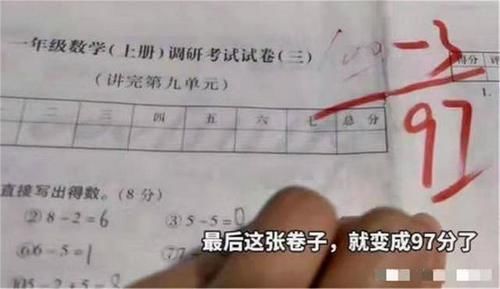 一年级数学(上册)调研考试试卷(三)
100-3
97
(讲完第九单元)
得分
1.
二 三 四 五 六 七 总分
直接写出得数。(8分)
②8-2=6 ③5-5=0
⑥6-5=1
最后这张卷子，就变成97分了